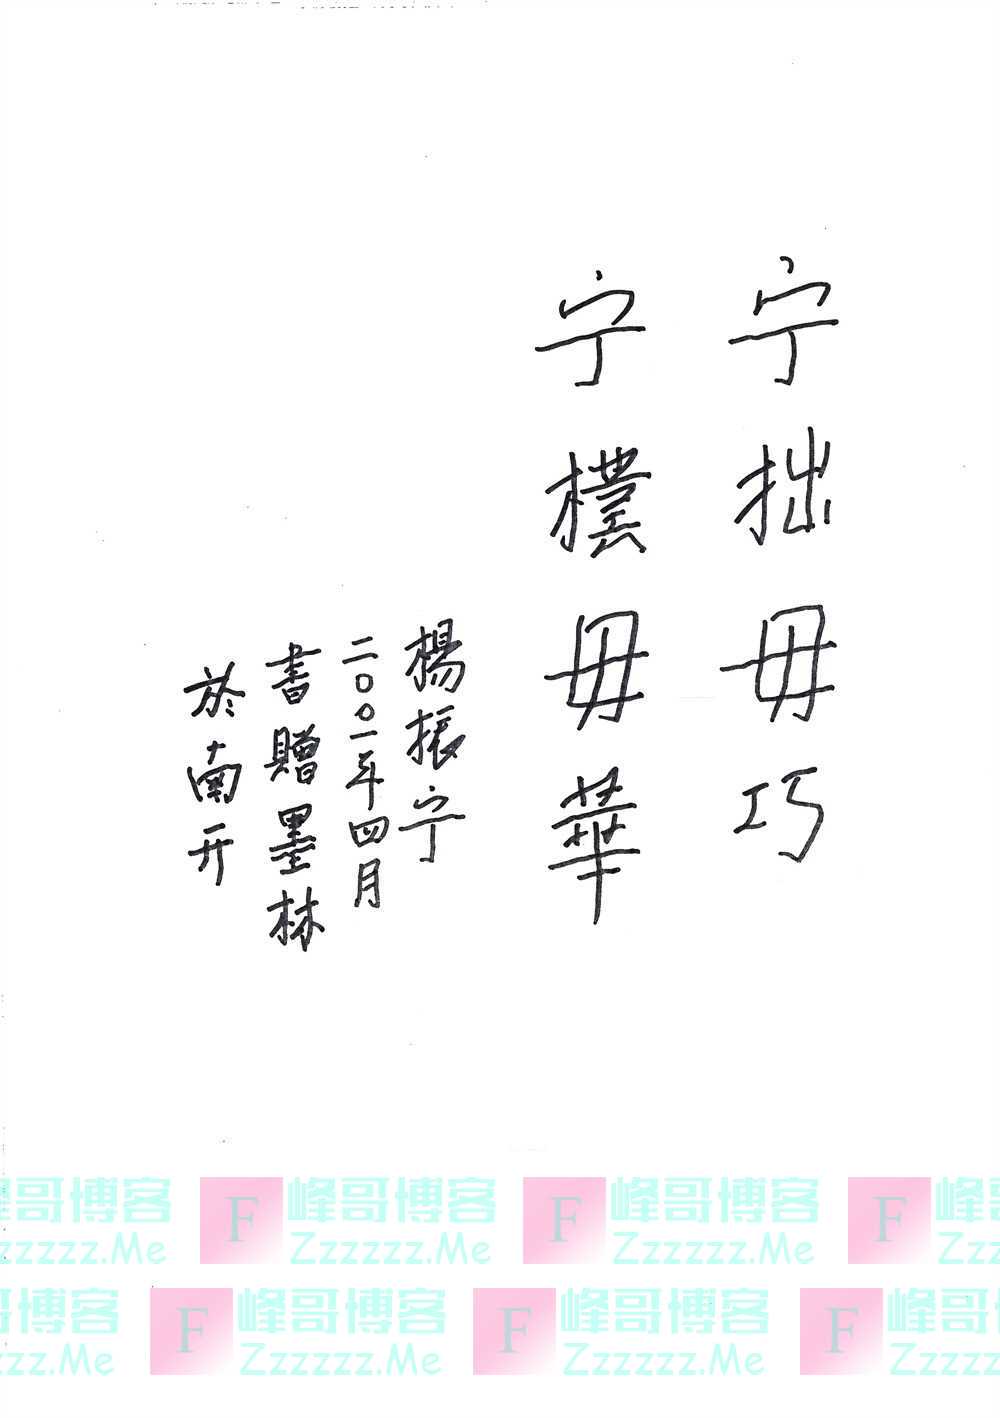 宁拙毋巧
宁樸毋華
楊振宁
二〇〇一年四月
書贈墨林
於南开
峰哥博客 F 峰哥博客 F 峰哥博客 F 峰哥博客
zzzzzz.Me Zzzzzz.Me Zzzzzz.Me Zzzzz
哥博客 F 峰哥博客 F 峰哥博客 F 峰哥博
zzzz.Me Zzzzzz.Me Zzzzzz.Me Zzzzzz.